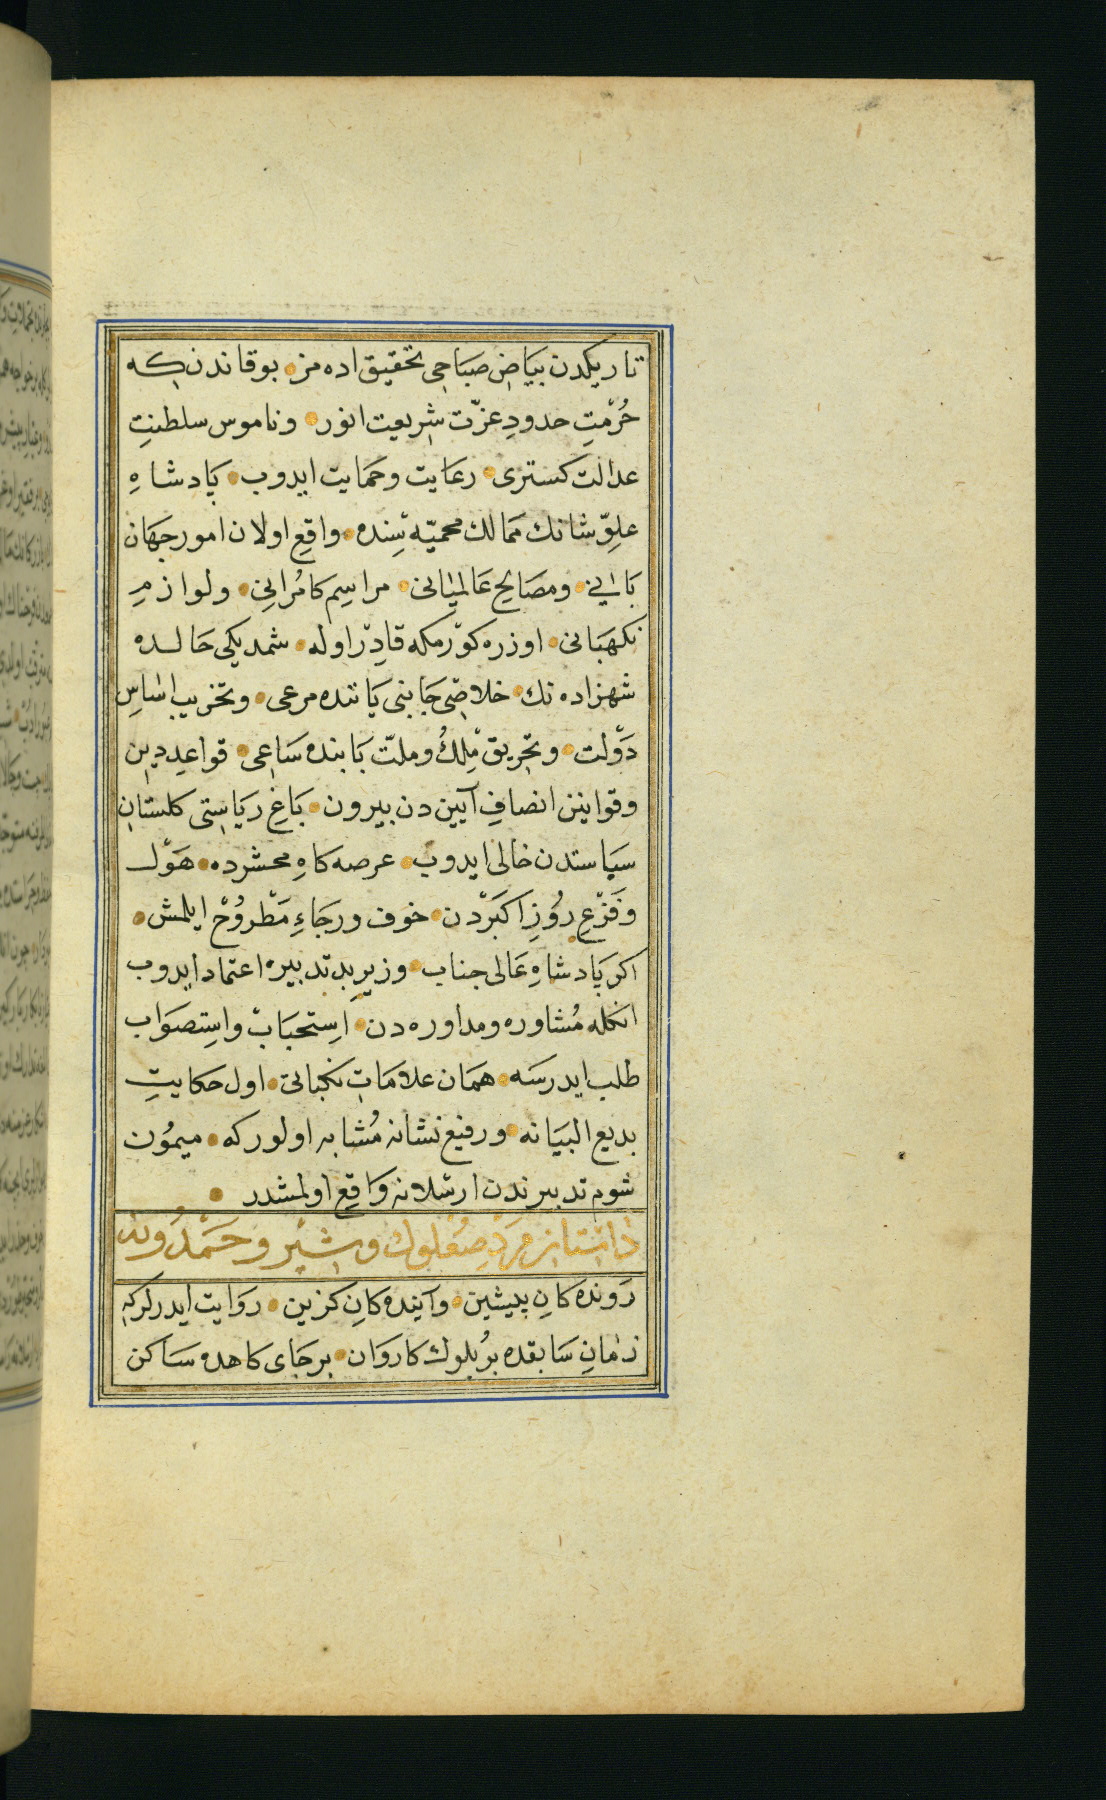 تاریکدن بیاض صباحی تحقیق اده مز بوقاندن که
حُرْمتِ حدودِ عزّت شریعت انور وناموس سلطنتِ
عدالت کستری رعایت وحمایت ایدوب پادشاهِ
علوّ شانك ممالك محمیّه سِنده واقع اولان امور جهان
بانی ومصالح عالمیانی مراسِم کامرانی ولوازمِ
نکهبانی اوزره کورمکه قادِر اوله شمدیکی حالده
شهزاده نك خلاصی جانبی یاننده مرعی وتخریب اساسِ
دَوْلت وتحریق مِلكُ وملّت بابنده ساعی قواعِد دین
وقوانین انصافِ آیین دن بیرون باغِ ریاستی کلستانِ
سیاستدن خالی ایدوب عرصه کاهِ محشرده هَوْل
وفَزْعِ رُوْزِ اکبَرْدن خوف ورجاءِ مَطْروُحْ ایلمش
اکر پادشاهِ عالی جناب وزیرِ بد تدبیره اعتماد ایدوب
انکله مُشاوره ومداوره دن اِستحبابْ واِستصواب
طلب ایدرسه همان علاماتِ نکبانی اول حکایتِ
بدیع البیانه ورفیع نشانه مُشابه اولورکه میمُون
شوم تدبیرندن ارسلانه واقع اولمشدر
داستانِ مَردِ صُعْلوك و شِیر و حَمْدُونه
رونده کانِ پیشین وآینده کانِ کزین روایت ایدرلرکه
زمانِ سابقده بُر بلوك کاروان برجای کاهده ساکن